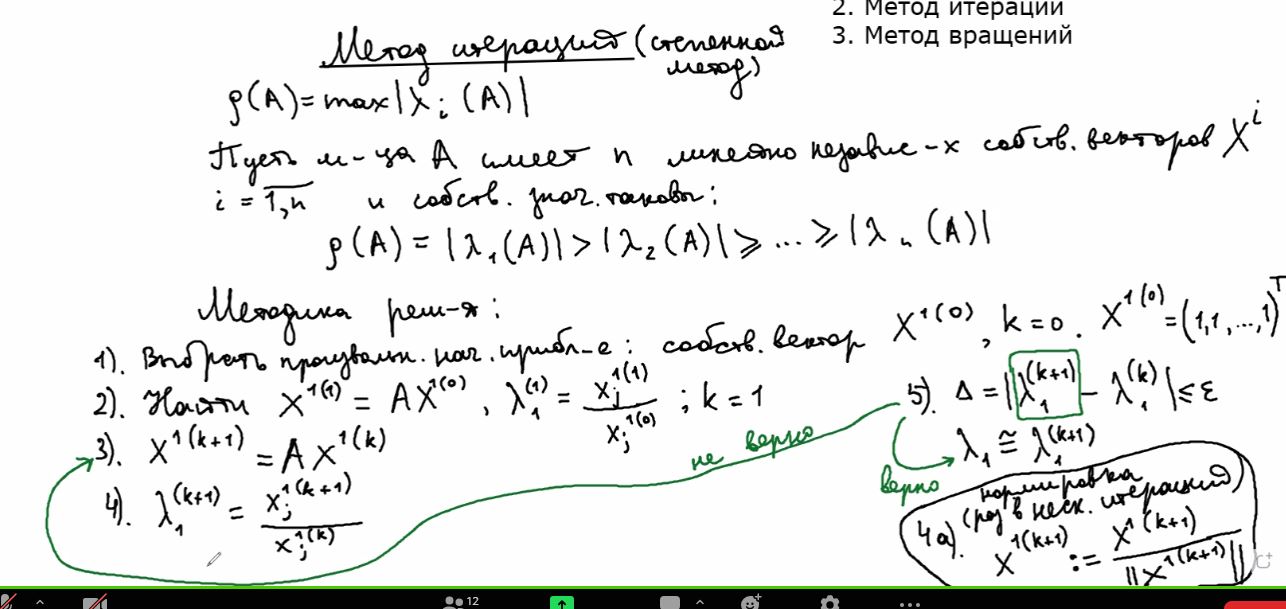 2. Метод итераций
3. Метод вращений
Метод итераций (степенной метод)
ρ(A) = max|λᵢ(A)|
Пусть м-ца A имеет n линейно независ-х собств. векторов Xⁱ
i = 1,n и собств. знач. таковы:
ρ(A) = |λ₁(A)| > |λ₂(A)| ⩾ ... ⩾ |λₙ(A)|
Методика реш-я:
1). Выбрать произвольн. нач. прибл-е: собств. вектор X¹⁽⁰⁾, k=0. X¹⁽⁰⁾ = (1,1,...,1)ᵀ
2). Найти X¹⁽¹⁾ = AX¹⁽⁰⁾, λ₁⁽¹⁾ = xⱼ¹⁽¹⁾ / xⱼ¹⁽⁰⁾ ; k = 1
3). X¹⁽ᵏ⁺¹⁾ = AX¹⁽ᵏ⁾
4). λ₁⁽ᵏ⁺¹⁾ = xⱼ¹⁽ᵏ⁺¹⁾ / xⱼ¹⁽ᵏ⁾
5). Δ = |λ₁⁽ᵏ⁺¹⁾ − λ₁⁽ᵏ⁾| ⩽ ε
не верно
верно
λ₁ ≅ λ₁⁽ᵏ⁺¹⁾
4а). нормировка
(раз в неск. итераций)
X¹⁽ᵏ⁺¹⁾ := X¹⁽ᵏ⁺¹⁾ / ||X¹⁽ᵏ⁺¹⁾||
12